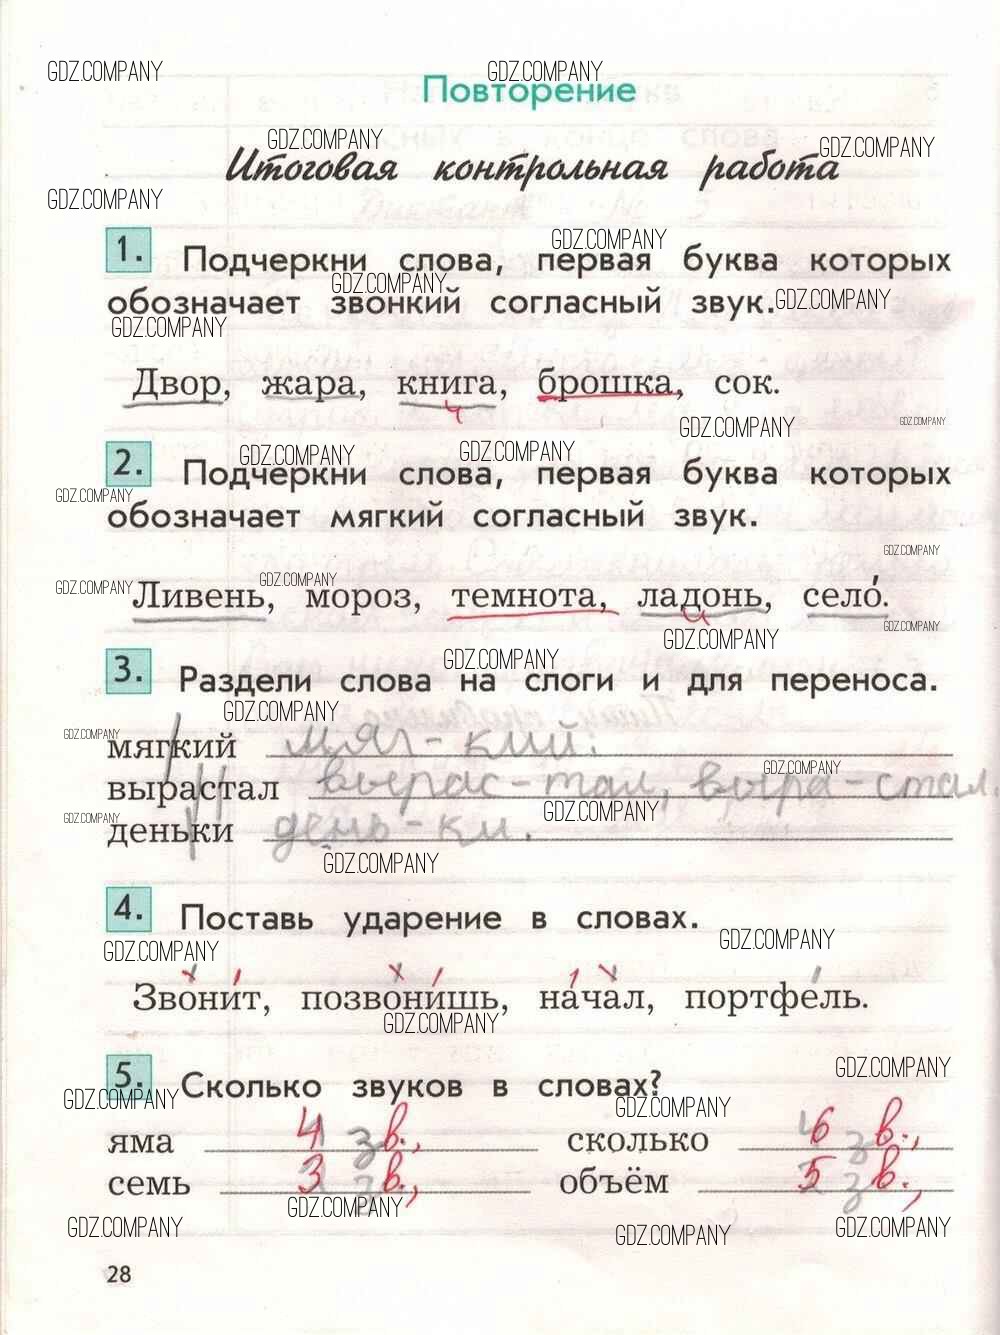 GDZ.COMPANY GDZ.COMPANY
Повторение
GDZ.COMPANY GDZ.COMPANY
Итоговая контрольная работа
GDZ.COMPANY
GDZ.COMPANY
1. Подчеркни слова, первая буква которых
GDZ.COMPANY
обозначает звонкий согласный звук. GDZ.COMPANY
GDZ.COMPANY
Двор, жара, книга, брошка, сок.
ч
GDZ.COMPANY GDZ.COMPANY
GDZ.COMPANY GDZ.COMPANY
2. Подчеркни слова, первая буква которых
GDZ.COMPANY
обозначает мягкий согласный звук.
GDZ.COMPANY
GDZ.COMPANY GDZ.COMPANY
Ливень, мороз, темнота, ладонь, село́.
GDZ.COMPANY
GDZ.COMPANY
GDZ.COMPANY
3. Раздели слова на слоги и для переноса.
GDZ.COMPANY
GDZ.COMPANY
мягкий мяг-кий.
GDZ.COMPANY
вырастал вырас-тал, выра-стал.
GDZ.COMPANY GDZ.COMPANY
деньки день-ки.
GDZ.COMPANY
4. Поставь ударение в словах.
GDZ.COMPANY GDZ.COMPANY
Звони́т, позвони́шь, на́чал, портфе́ль.
GDZ.COMPANY
5. Сколько звуков в словах?
GDZ.COMPANY
GDZ.COMPANY GDZ.COMPANY
яма 4 зв., сколько 6 зв.,
семь 3 зв., объём 5 зв.,
GDZ.COMPANY
GDZ.COMPANY GDZ.COMPANY GDZ.COMPANY
28